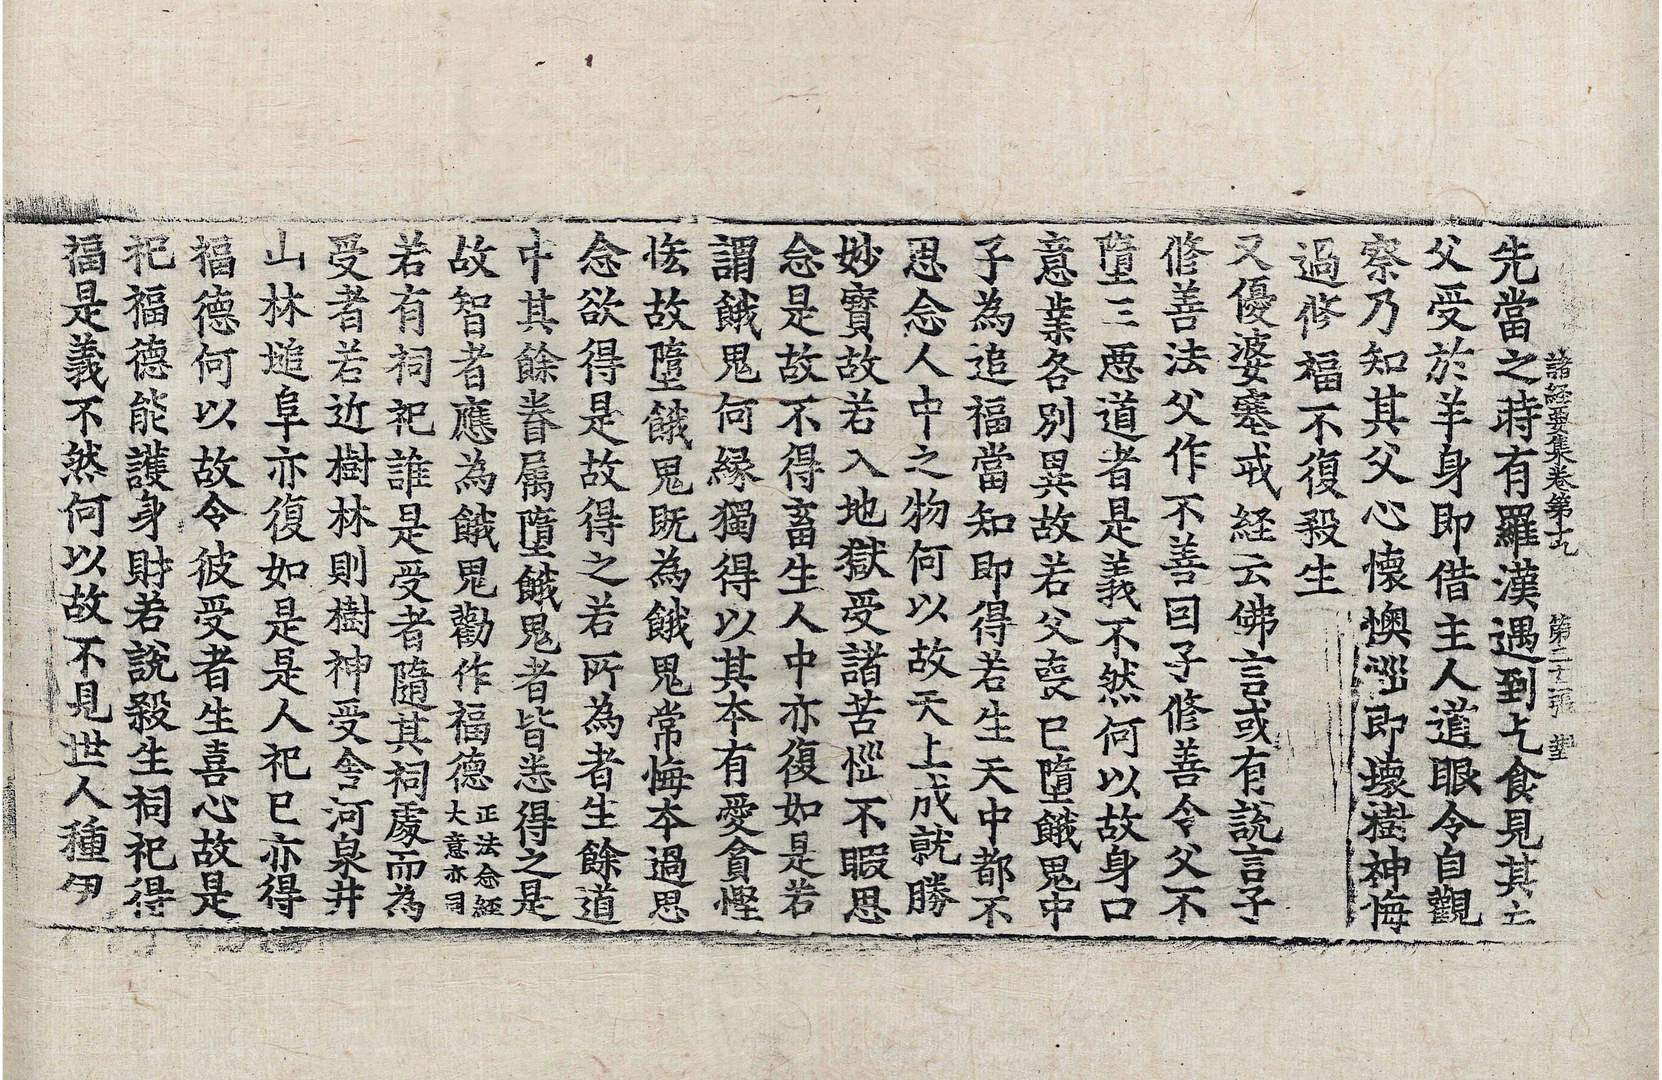 諸経要集卷第十九 第二十張 堂
先當之時有羅漢遇到乞食見其亡
父受於羊身即借主人道眼令自觀
察乃知其父心懷懊惱即壊樹神悔
過修福不復殺生
又優婆塞戒経云佛言或有說言子
修善法父作不善因子修善令父不
墮三惡道者是義不然何以故身口
意業各別異故若父喪已墮餓鬼中
子為追福當知即得若生天中都不
思念人中之物何以故天上成就勝
妙寳故若入地獄受諸苦惱不暇思
念是故不得畜生人中亦復如是若
謂餓鬼何縁獨得以其本有愛貪慳
恡故墮餓鬼既為餓鬼常悔本過思
念欲得是故得之若所為者生餘道
中其餘眷属墮餓鬼者皆悉得之是
故智者應為餓鬼勸作福德 正法念経大意亦同
若有祠祀誰是受者隨其祠處而為
受者若近樹林則樹神受舎河泉井
山林塠阜亦復如是是人祀已亦得
福德何以故令彼受者生喜心故是
祀福德能護身財若說殺生祠祀得
福是義不然何以故不見世人種伊